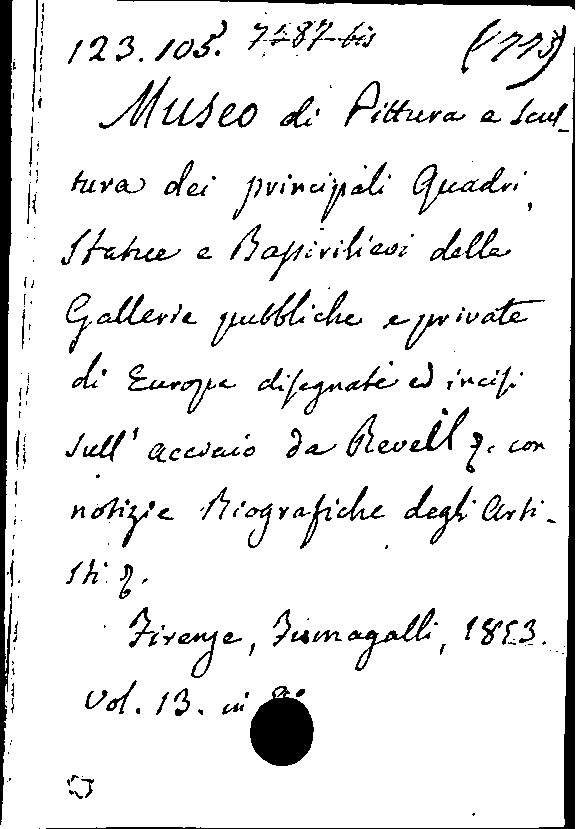 123.105. 7287 bis (1775)
Museo di Pittura e Scul-
tura dei principali Quadri,
Statue e Bassirilievi delle
Gallerie pubbliche e private
di Europa disegnati ed incisi
sull' acciaio da Reveil &. con
notizie Biografiche degli Arti-
sti &.
Firenze, Fumagalli, 1853.
Vol. 13. in 8°